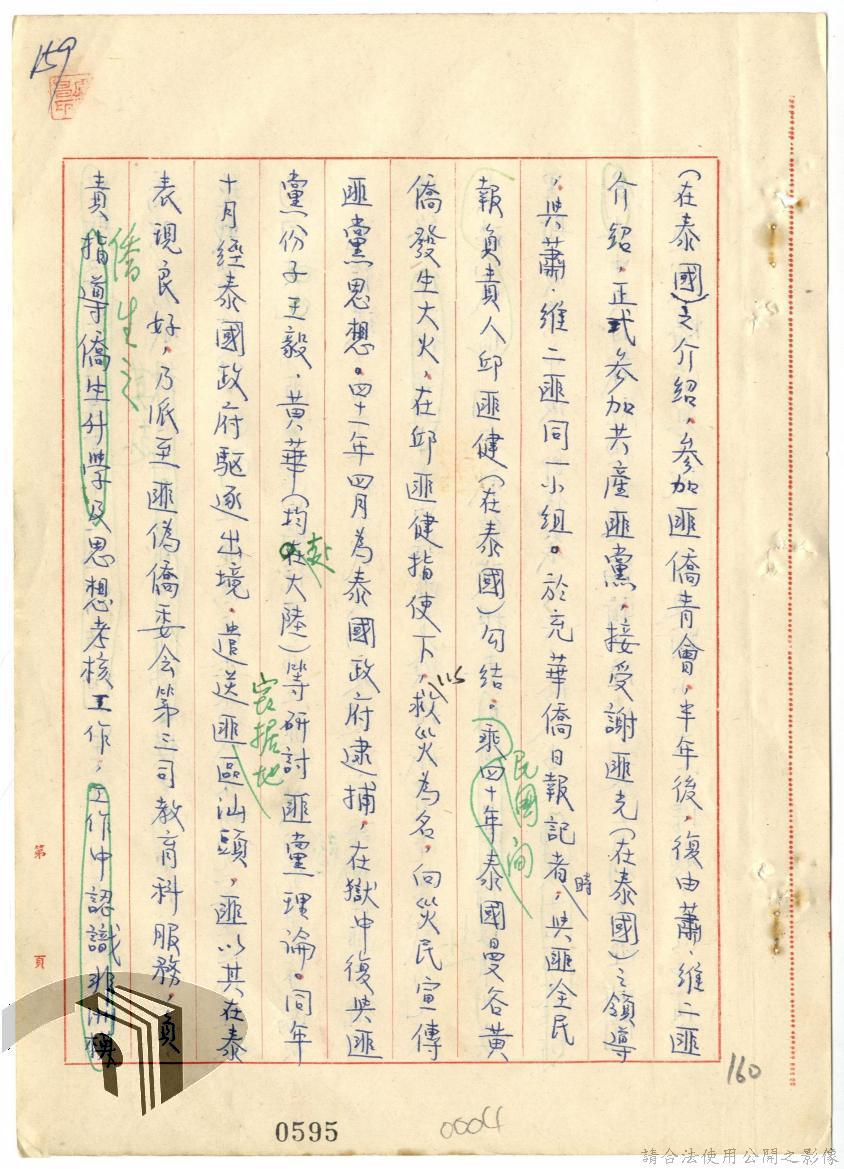 159
(在泰國)之介紹,參加匪僑青會,半年後,復由蕭、維二匪
介紹,正式參加共產匪黨,接受謝匪光(在泰國)之領導
,與蕭、維二匪同一小組。於充華僑日報記者時,與匪全民
報負責人邱匪健(在泰國)勾結。乘民國四十年間泰國曼谷黃
僑發生大火,在邱匪健指使下,以救災為名,向災民宣傳
匪黨思想。四十一年四月為泰國政府逮捕,在獄中復與匪
黨份子王毅、黃華(均在赴大陸)等研討匪黨理論。同年
十月經泰國政府驅逐出境,遣送匪區竊据地汕頭,匪以其在泰
表現良好,乃派至匪偽僑委会第三司教育科服務,負
責指導僑生升學及僑生之思想考核工作,工作中認識
第 頁
160
0595
0004
請合法使用公開之影像